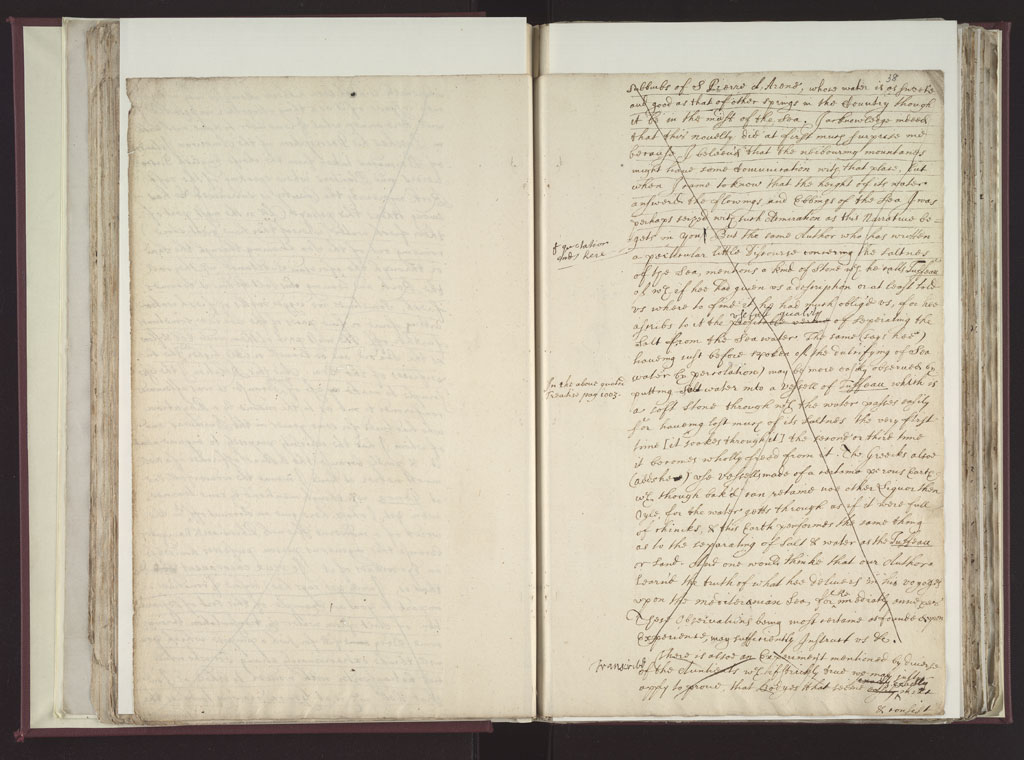 38
Subburbs of S Pierre d'Arena, whose water is as sweete
and good as that of other springs in the Countrey though
it be in the midst of the Sea. I acknowledge indeed
that this novelty did at first much surprise me
because I beleiv'd that the neibouring mountaines
might have some Comunication with that place, but
when I came to know that the height of its water
answers the flowings and Ebbings of the Sea I was
perhaps seized with such Admiration as this Narrative be-
gets in you. But the same Author who has written
a perticular little Discourse concerning the saltnes
of the Sea, mentions a kind of Stone wch he calls Tuffeau
of wch if hee had given us a description or at least told
us where to find it he had much oblig'd us, for hee
ascribs to it the quality of seperating the
Salt from the Sea water. The same (says hee)
haveing just before spoken of the dulcifying of Sea
water by percolation) may be more easily observed by
putting Salt water into a vessell of Tuffeau which is
a soft stone through wch the water passes easily
for haveing lost much of its saltnes the very first
time [it soakes through it] the second or third time
it becomes wholly freed from it. The Greeks alsoe
use vessells made of a certaine porous Earth
wch though bak'd can retaine noe other Liquor then
Oyle, for the water getts through as if it were full
of chincks, & this Earth performes the same thing
as to the seperating of salt & water as the Tuffeau
or sand. And one would thinke that our Author
learn'd the truth of what hee delivers in his voyages
upon the mediteranian Sea, for hee imediatly annexes
These Observations being most certaine as founded upon
Experience, may sufficiently Instruct us &c.
There is alsoe an Experiment mentioned by diverse
of the Auntients wch if strictly true we may safely
apply to prove, that
& consist
ye quotation
ends here
In the above quoted
Treatise pag 1003.
transcribe